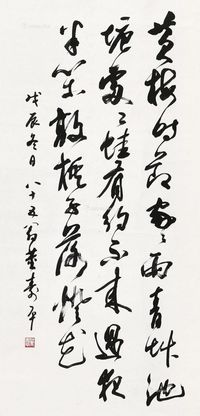 黃梅時節家〻雨青草池
塘處〻蛙有約不來過夜
半閒敲棋子落燈花
戊辰冬日 八十五翁董壽平